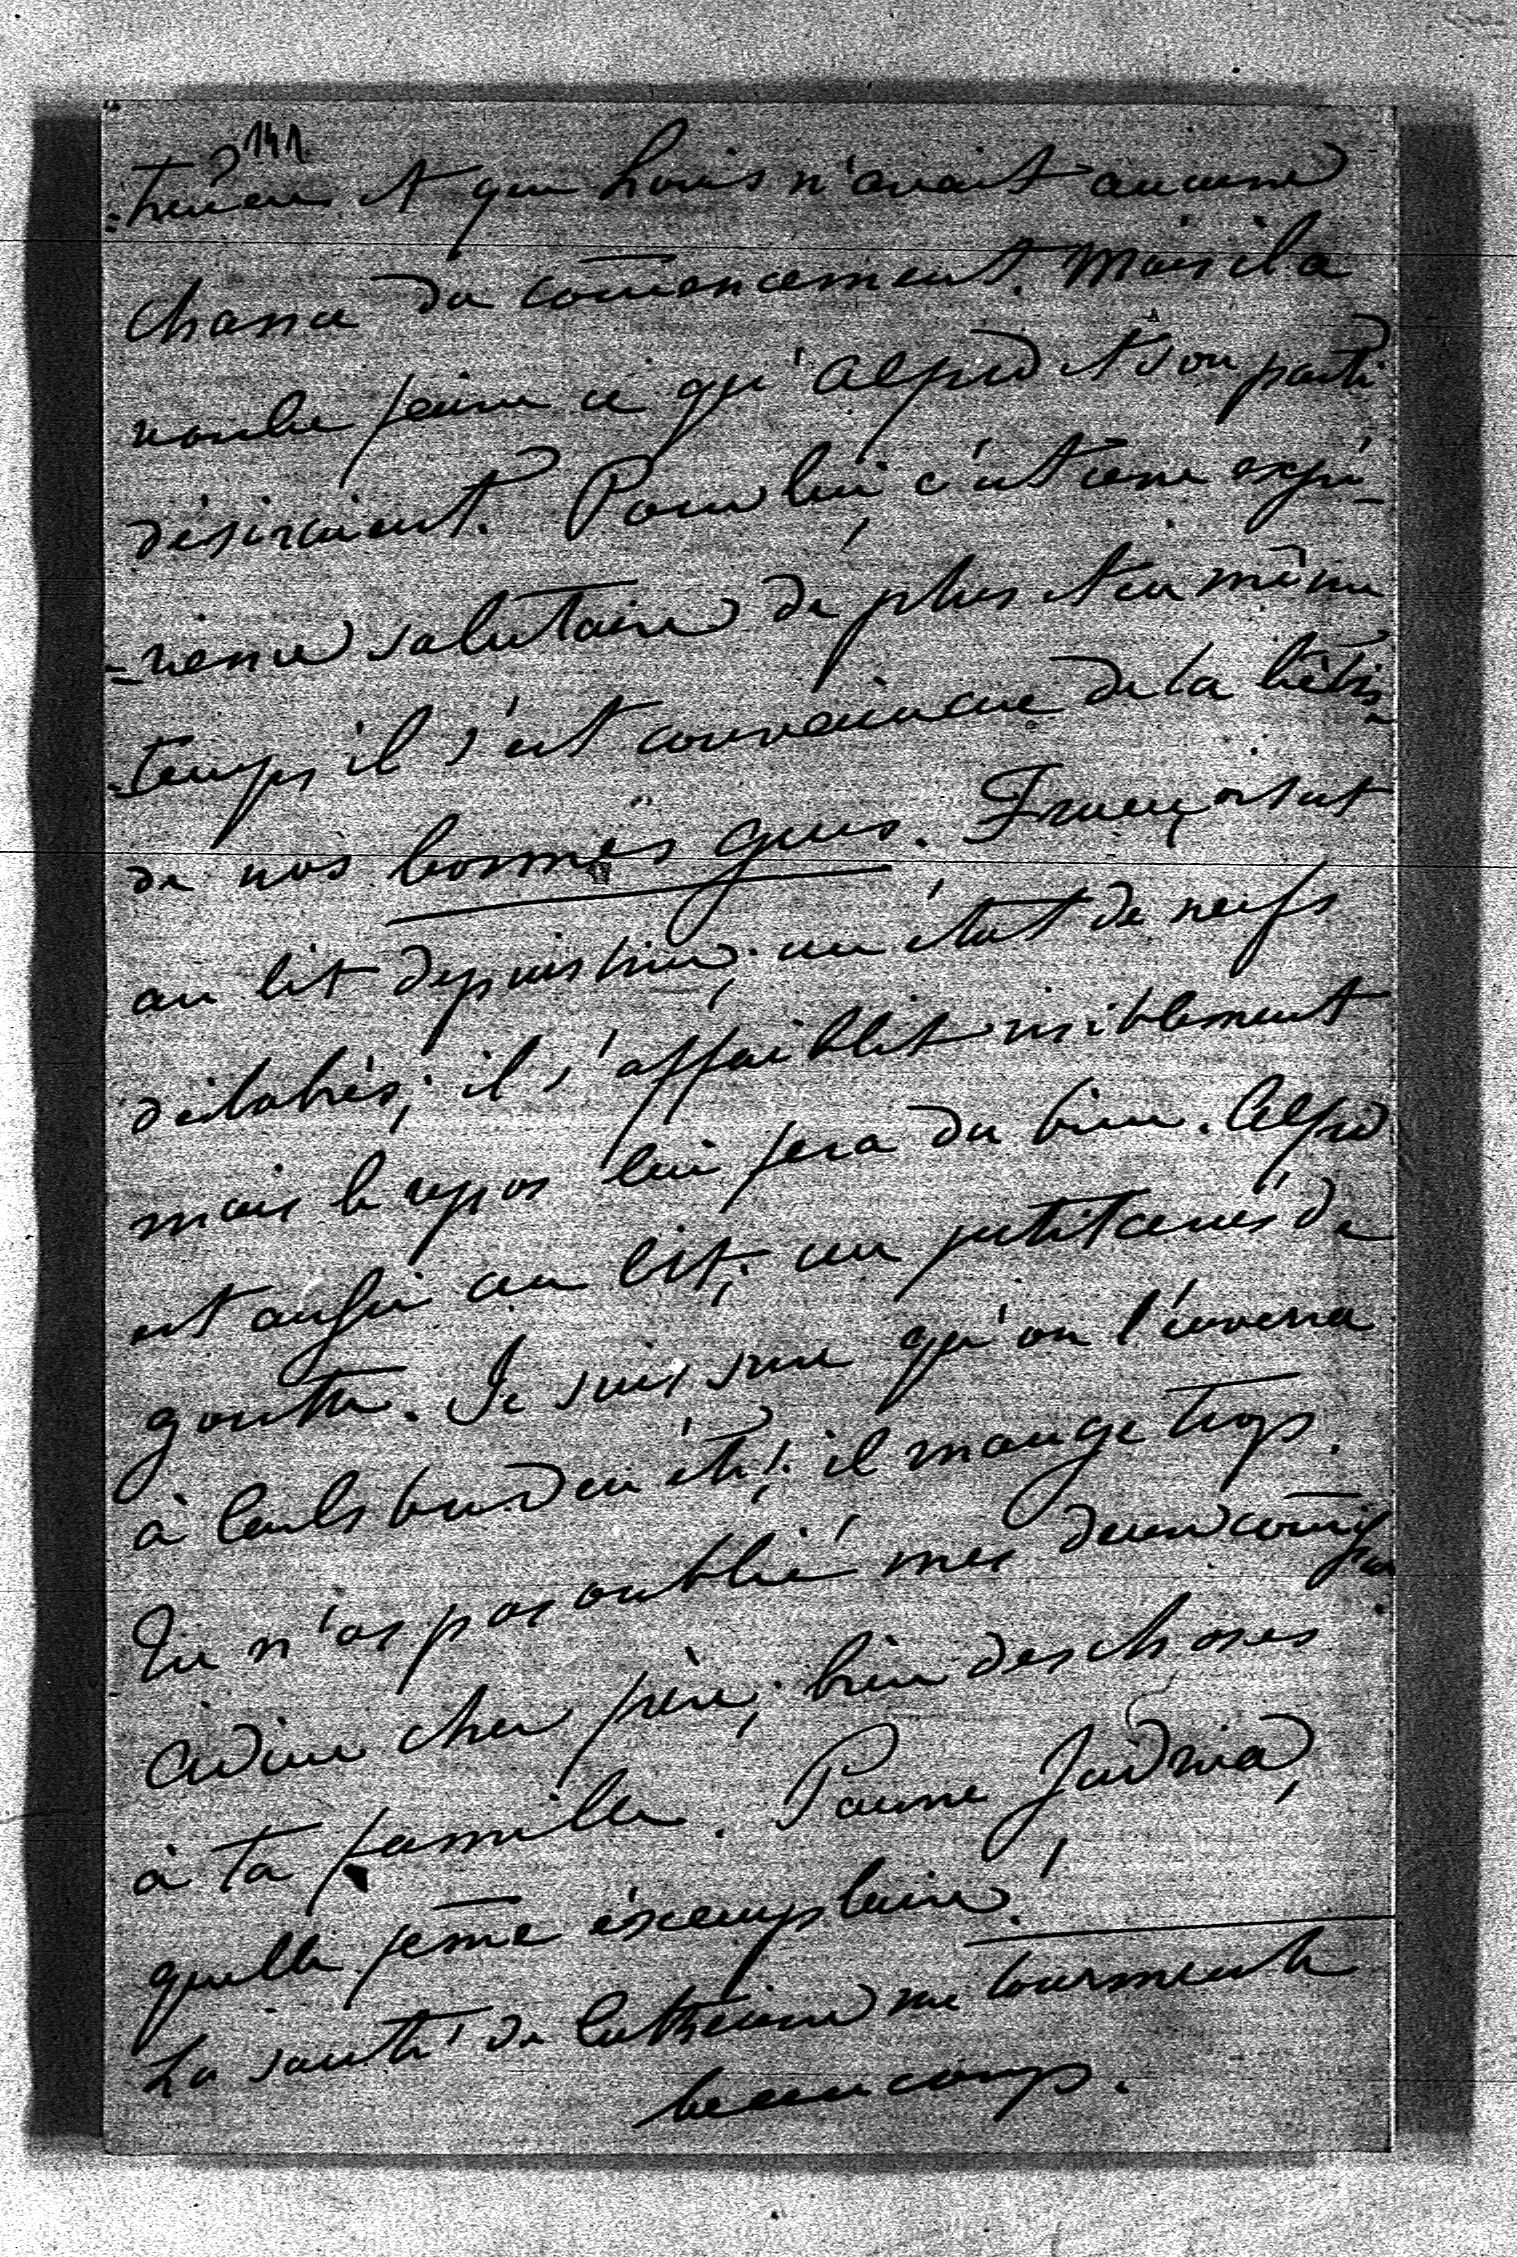 141
-trieure et que Louis n'avait aucune
chance du com̄encement. Mais il a
voulu faire ce qu'Alfred et son parti
désiraient. Pour lui c'est une expé-
=rience salutaire de plus et en même
=temps il s'est convaincue de la bêtise
de nos bonnes gens. François est
au lit depuis hier; un état de nerfs
délabrés; il s'affaiblit visiblement
mais le repos lui fera du bien. Alfred
est aussi au lit; un petit accès de
goutte. Je suis sure qu'on l'enverra
à Carlsbad en été; il mange trop.
Tu n'as pas oublié mes deux com̄issions.
Adieu cher frère; bien des choses
à ta famille. Pauvre Jadwiga,
quelle fem̄e éxemplaire!
La santé de Catherine me tourmente
beaucoup.